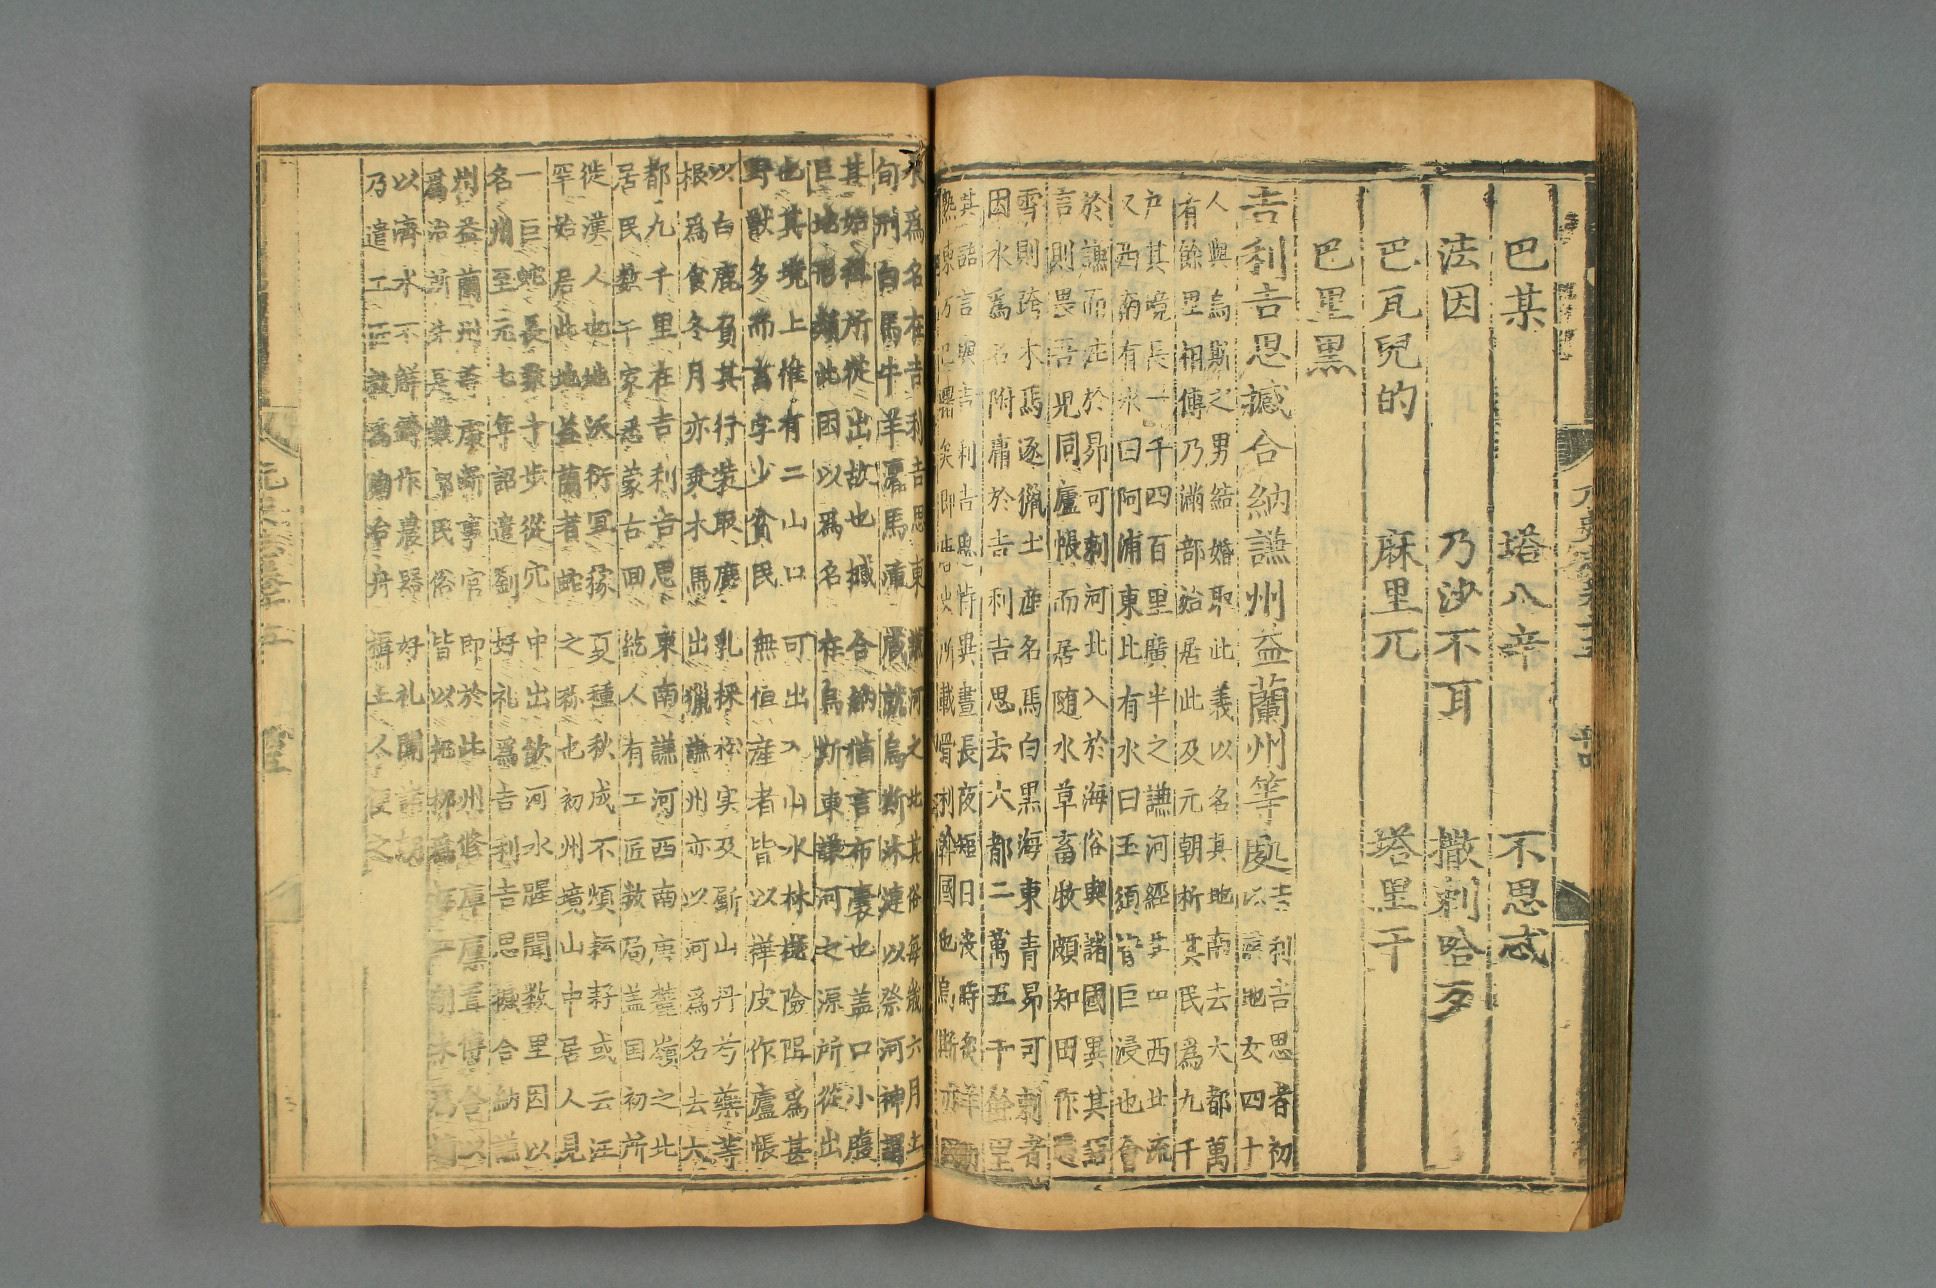 巴某　塔八辛　不思忒
法因　乃沙不耳　撒剌哈歹
巴瓦兒的　麻里兀　塔里干
巴里黑
吉利吉思撼合納謙州益蘭州等處
吉利吉思者初
以漢地女四十
人與烏斯之男結婚取此義以名其地南去大都萬
有餘里相傳乃滿部始居此及元朝析其民為九千
户其境長一千四百里廣半之謙河經其中西北流
又西南有水曰阿浦東北有水曰玉須皆巨浸也會
於謙而注於昂可剌河北入於海俗與諸國異其語
言則畏吾兒同廬帳而居随水草畜牧頗知田作遇
雪則跨木馬逐獵土產名馬白黑海東青昂可剌者
因水為名附庸於吉利吉思去大都二萬五千餘里
其語言與吉利吉思特異晝長夜短日沒時炙羊
熟東方已曙矣即唐史所載骨利幹國也烏斯亦因
水為名在吉利吉思東謙河之北其俗每歲六月上
旬刑白馬牛羊灑馬湩咸就烏斯沐漣以祭河神謂
其始祖所從出故也撼合納猶言布囊也盖口小腹
巨地形類此因以為名在烏斯東謙河之源所從出
也其境上惟有二山口可出入山水林樾險阻為甚
野獸多而畜字少貧民無恒產者皆以樺皮作廬帳
以白鹿負其行裝取鹿乳採松實及斸山丹芍藥等
根為食冬月亦乘木馬出獵謙州亦以河為名去大
都九千里在吉利吉思東南謙河西南唐麓嶺之北
居民數千家悉蒙古回紇人有工匠數局盖国初所
徙漢人也地沃衍宜稼夏種秋成不煩耘耔或云汪
罕始居此地益蘭者蛇之称也初州境山中居人見
一巨蛇長數十步從穴中出飲河水腥聞數里因以
名州至元七年詔遣劉好礼為吉利吉思撼合納謙
州益蘭州等處斷事官即於此州修庫廩置傳舍以
為治所先是數部民俗皆以杞柳為杯皿刳木為槽
以濟水不解鑄作農器好礼聞諸朝
乃遣工匠教為陶冶舟楫土人便之